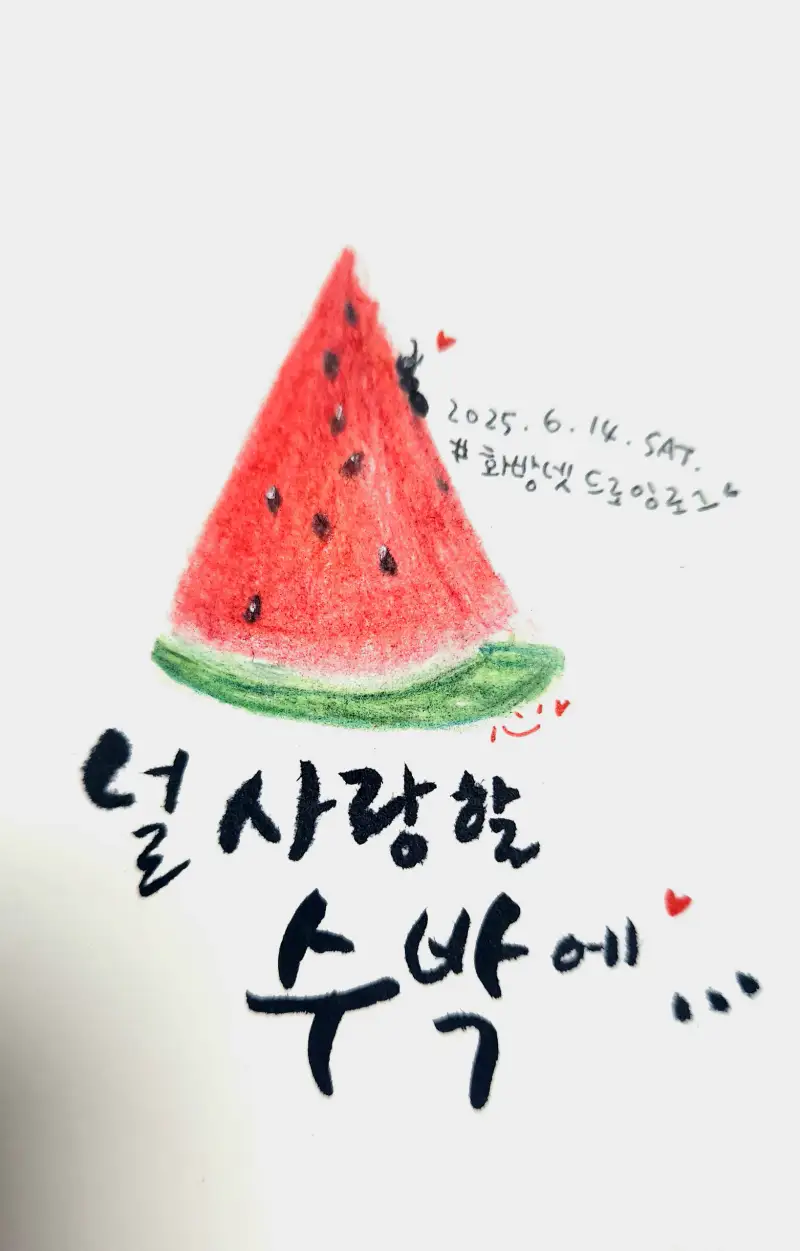 2025. 6. 14. SAT.
# 화방넷 드로잉로그
널 사랑할
수박에...